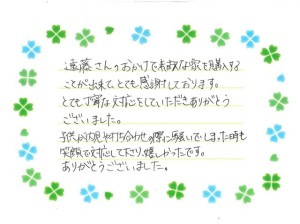 遠藤さんのおかげで素敵な家を購入する
ことが出来て、とても感謝しております。
とても丁寧な対応をしていただきありがとう
ございました。
子供が内見や打ち合わせの際に騒いでしまった時も
笑顔で対応して下さり、嬉しかったです。
ありがとうございました。